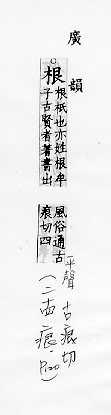 廣韻
根
根柢也亦姓根牟
子古賢者著書出
風俗通古
痕切四
平聲 古痕切
痕